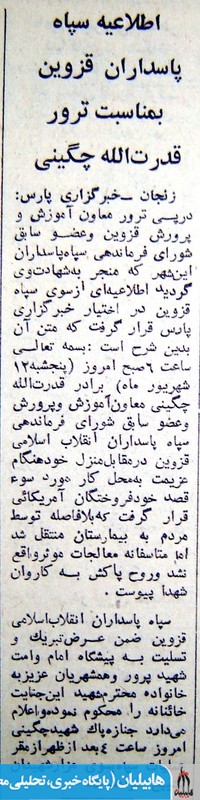 اطلاعیه سپاه
پاسداران قزوین
بمناسبت ترور
قدرت‌الله چگینی
زنجان ـ خبرگزاری پارس:
درپی ترور معاون آموزش و
پرورش قزوین وعضو سابق
شورای فرماندهی سپاه‌پاسداران
این‌شهر که منجر به‌شهادت‌وی
گردید اطلاعیه‌ای ازسوی سپاه
قزوین در اختیار خبرگزاری
پارس قرار گرفت که متن آن
بدین شرح است: بسمه تعالی
ساعت ۶صبح امروز (پنجشنبه۱۲
شهریور ماه) برادر قدرت‌الله
چگینی معاون‌آموزش وپرورش
وعضو سابق شورای فرماندهی
سپاه پاسداران انقلاب اسلامی
قزوین درمقابل‌منزل خودهنگام
عزیمت به‌محل کار مورد سوء
قصد خودفروختگان آمریکائی
قرار گرفت که‌بلافاصله توسط
مردم به بیمارستان منتقل شد
اما متاسفانه معالجات موثرواقع
نشد وروح پاکش به کاروان
شهدا پیوست.
سپاه پاسداران انقلاب‌اسلامی
قزوین ضمن عرض‌تبریک و
تسلیت به پیشگاه امام وامت
شهید پرور وهمشهریان عزیزبه
خانواده محترم‌شهید این‌جنایت
خائنانه را محکوم نموده‌واعلام
می‌دارد جنازه‌پاک شهیدچگینی
امروز ساعت ۴بعد ازظهرازمقر
هابیلیان (پایگاه خبری، تحلیلی